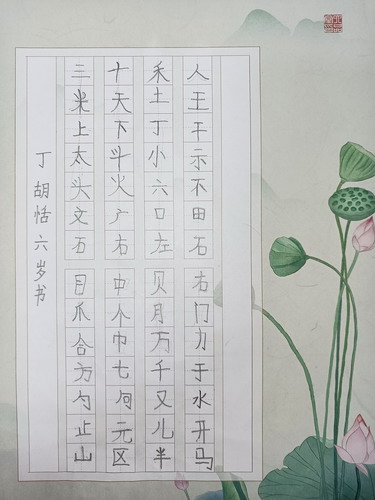 人王干示不田石右门力于水开马
禾土丁小六口左贝月万千又儿半
十天下斗火广右中个巾七句元区
三米上太头文石目爪合方勺止山
丁胡恬六岁书